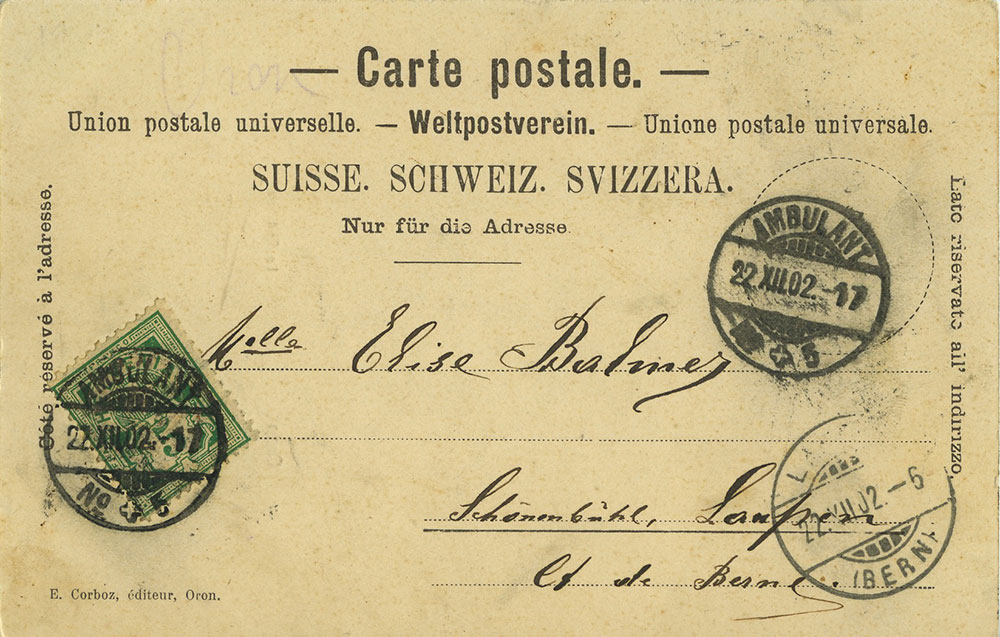 — Carte postale. —
Union postale universelle. — Weltpostverein. — Unione postale universale.
SUISSE. SCHWEIZ. SVIZZERA.
Nur für die Adresse.
Côté réservé à l'adresse.
Lato riservato all' indirizzo.
AMBULANT
22.XII.02.-17
5
Melle Elise Balmer
AMBULANT
22.XII.02.-17
No 5
Schönenbühl, Laupen
Ct de Berne.
22.XII.02.-6
(BERN)
E. Corboz, éditeur, Oron.